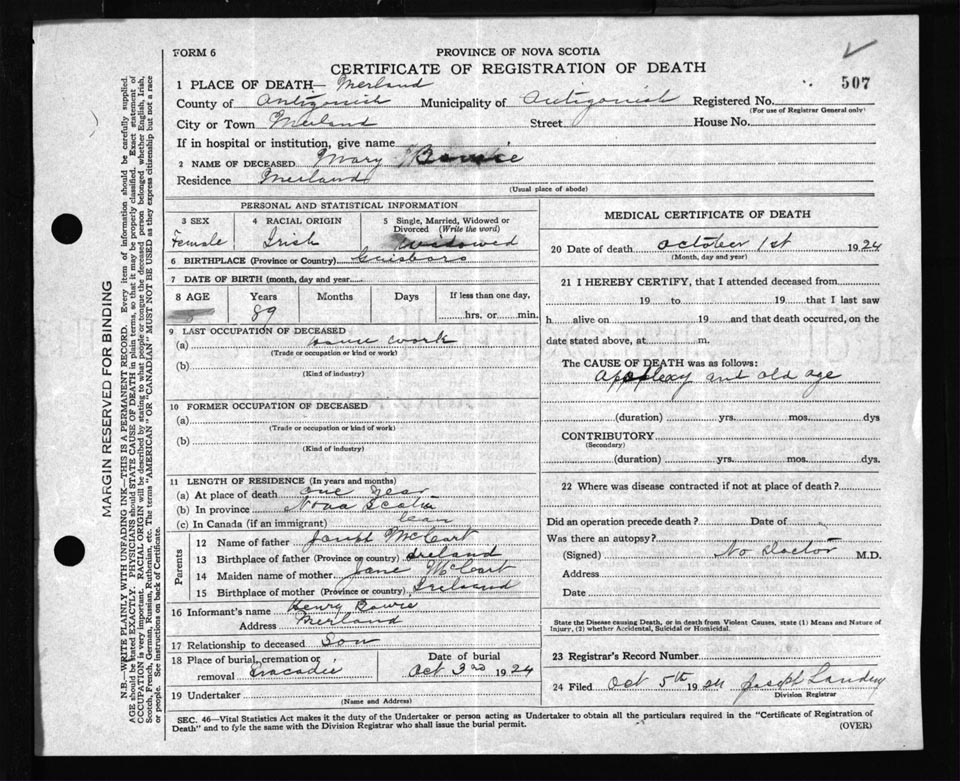 FORM 6
PROVINCE OF NOVA SCOTIA
CERTIFICATE OF REGISTRATION OF DEATH
507
1 PLACE OF DEATH— Merland
County of Antigonish Municipality of Antigonish Registered No.
(For use of Registrar General only)
City or Town Merland Street House No.
If in hospital or institution, give name
2 NAME OF DECEASED Mary
Residence Merland
(Usual place of abode)
PERSONAL AND STATISTICAL INFORMATION
3 SEX 4 RACIAL ORIGIN 5 Single, Married, Widowed or Divorced (Write the word)
Female Irish Widowed
6 BIRTHPLACE (Province or Country) Guisboro
7 DATE OF BIRTH (month, day and year)
8 AGE Years Months Days If less than one day,
89 hrs. or min.
9 LAST OCCUPATION OF DECEASED
(a) house work
(Trade or occupation or kind or work)
(b)
(Kind of industry)
10 FORMER OCCUPATION OF DECEASED
(a)
(Trade or occupation or kind of work)
(b)
(Kind of industry)
11 LENGTH OF RESIDENCE (In years and months)
(a) At place of death one year
(b) In province Nova Scotia
(c) In Canada (if an immigrant)
Parents
12 Name of father Joseph McCart
13 Birthplace of father (Province or country) Ireland
14 Maiden name of mother Jane McCart
15 Birthplace of mother (Province or country) Ireland
16 Informant's name Henry Bowie
Address Merland
17 Relationship to deceased Son
18 Place of burial, cremation or removal Tracadie Date of burial Oct 3rd 1924
19 Undertaker
(Name and Address)
MEDICAL CERTIFICATE OF DEATH
20 Date of death October 1st 1924
(Month, day and year)
21 I HEREBY CERTIFY, that I attended deceased from
19 to 19 that I last saw
h alive on 19 and that death occurred, on the
date stated above, at m.
The CAUSE OF DEATH was as follows:
apoplexy and old age
(duration) yrs. mos. dys
CONTRIBUTORY
(Secondary)
(duration) yrs. mos. dys.
22 Where was disease contracted if not at place of death?
Did an operation precede death? Date of
Was there an autopsy?
(Signed) No Doctor M.D.
Address
Date
State the Disease causing Death, or in death from Violent Causes, state (1) Means and Nature of
Injury, (2) whether Accidental, Suicidal or Homicidal.
23 Registrar's Record Number
24 Filed Oct 5th 1924 Joseph Landry
Division Registrar
SEC. 46—Vital Statistics Act makes it the duty of the Undertaker or person acting as Undertaker to obtain all the particulars required in the "Certificate of Registration of
Death" and to fyle the same with the Division Registrar who shall issue the burial permit.
(OVER)
MARGIN RESERVED FOR BINDING
N.B.—WRITE PLAINLY WITH UNFADING INK—THIS IS A PERMANENT RECORD. Every item of information should be carefully supplied.
AGE should be stated EXACTLY. PHYSICIANS should STATE CAUSE OF DEATH in plain terms, so that it may be properly classified. Exact statement of
OCCUPATION is very important. RACIAL ORIGIN will be described by stating to what people or tongue the deceased person belonged whether English, Irish,
Scotch, French, German, Russian, Ruthenian, etc. The terms "AMERICAN" OR "CANADIAN" MUST NOT BE USED as they express citizenship but not a race
or people. See instructions on back of Certificate.